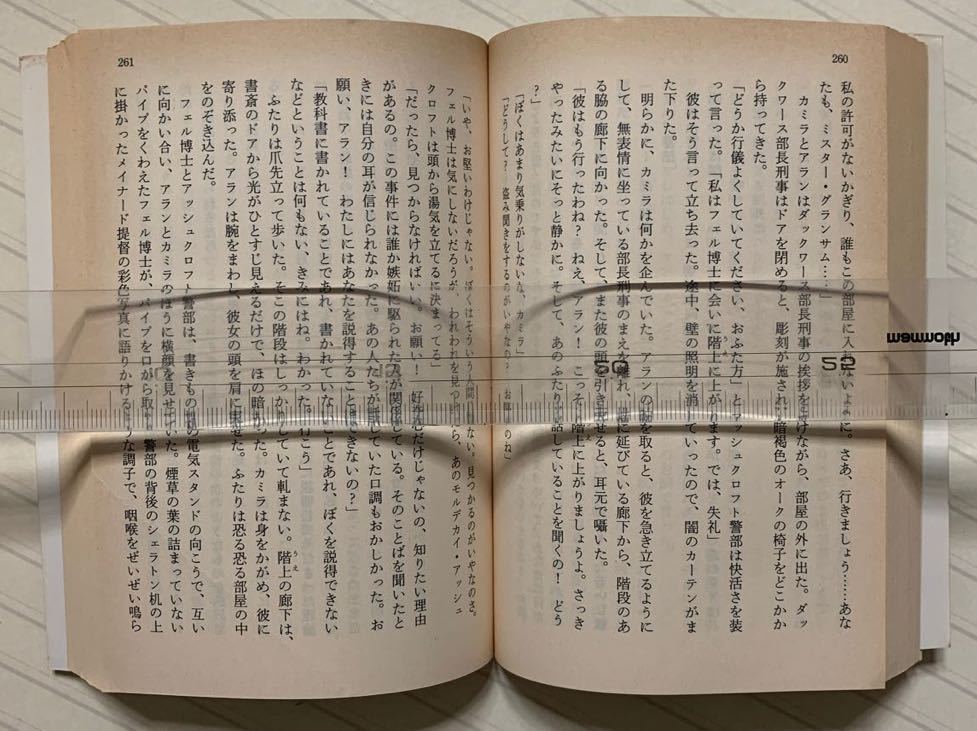 260
私の許可がないかぎり、誰もこの部屋に入れないように。さあ、行きましょう……あな
たも、ミスター・グランサム……」
カミラとアランはダックワース部長刑事の挨拶を受けながら、部屋の外に出た。ダッ
クワース部長刑事はドアを閉めると、彫刻が施された暗褐色のオークの椅子をどこかか
ら持ってきた。
「どうか行儀よくしていてください、おふた方」とアッシュクロフト警部は快活さを装
って言った。「私はフェル博士に会いに階上に上がります。では、失礼」
うえ
彼はそう言って立ち去った。途中、壁の照明を消していったので、闇のカーテンがま
た下りた。
明らかに、カミラは何かを企んでいた。アランの腕を取ると、彼を急き立てるように
して、無表情に坐っている部長刑事のまえを離れ、 に延びている廊下から、階段のあ
る脇の廊下に向かった。そして、また彼の頭を引き寄せると、耳元で囁いた。
「彼はもう行ったわね？ ねえ、アラン！ こっそり階上に上がりましょうよ。さっき
やったみたいにそっと静かに。そして、あのふたりが話していることを聞くの！ どう
？」
「ぼくはあまり気乗りがしないな、カミラ」
「どうして？ 盗み聞きをするのがいやなの？ お堅いのね」
261
「いや、お堅いわけじゃない。ぼくはそういう人間じゃない。見つかるのがいやなのさ。
フェル博士は気にしないだろうが、われわれを見つけたら、あのモルデカイ・アッシュ
クロフトは頭から湯気を立てるに決まってる」
「だったら、見つからなければいい。お願い！ 好奇心だけじゃないの、知りたい理由
があるの。この事件には誰か嫉妬に駆られた人が関係している。そのことばを聞いたと
きには自分の耳が信じられなかった。あの人たちが話していた口調もおかしかった。お
願い、アラン！ わたしにはあなたを説得することはできないの？」
「教科書に書かれていることであれ、書かれていないことであれ、ぼくを説得できない
などということは何もない、きみにはね。わかった。行こう」
ふたりは爪先立って歩いた。そこの階段はしっかりしていて軋まない。階上の廊下は、
うえ
書斎のドアから光がひとすじ見えるだけで、ほの暗かった。カミラは身をかがめ、彼に
寄り添った。アランは腕をまわし、彼女の頭を肩に乗せた。ふたりは恐る恐る部屋の中
をのぞき込んだ。
フェル博士とアッシュクロフト警部は、書きもの机の電気スタンドの向こうで、互い
に向かい合い、アランとカミラのほうに横顔を見せていた。煙草の葉の詰まっていない
パイプをくわえたフェル博士が、パイプを口から取り、警部の背後のシェラトン机の上
に掛かったメイナード提督の彩色写真に語りかけるような調子で、咽喉をぜいぜい鳴ら
mammoth
50
52